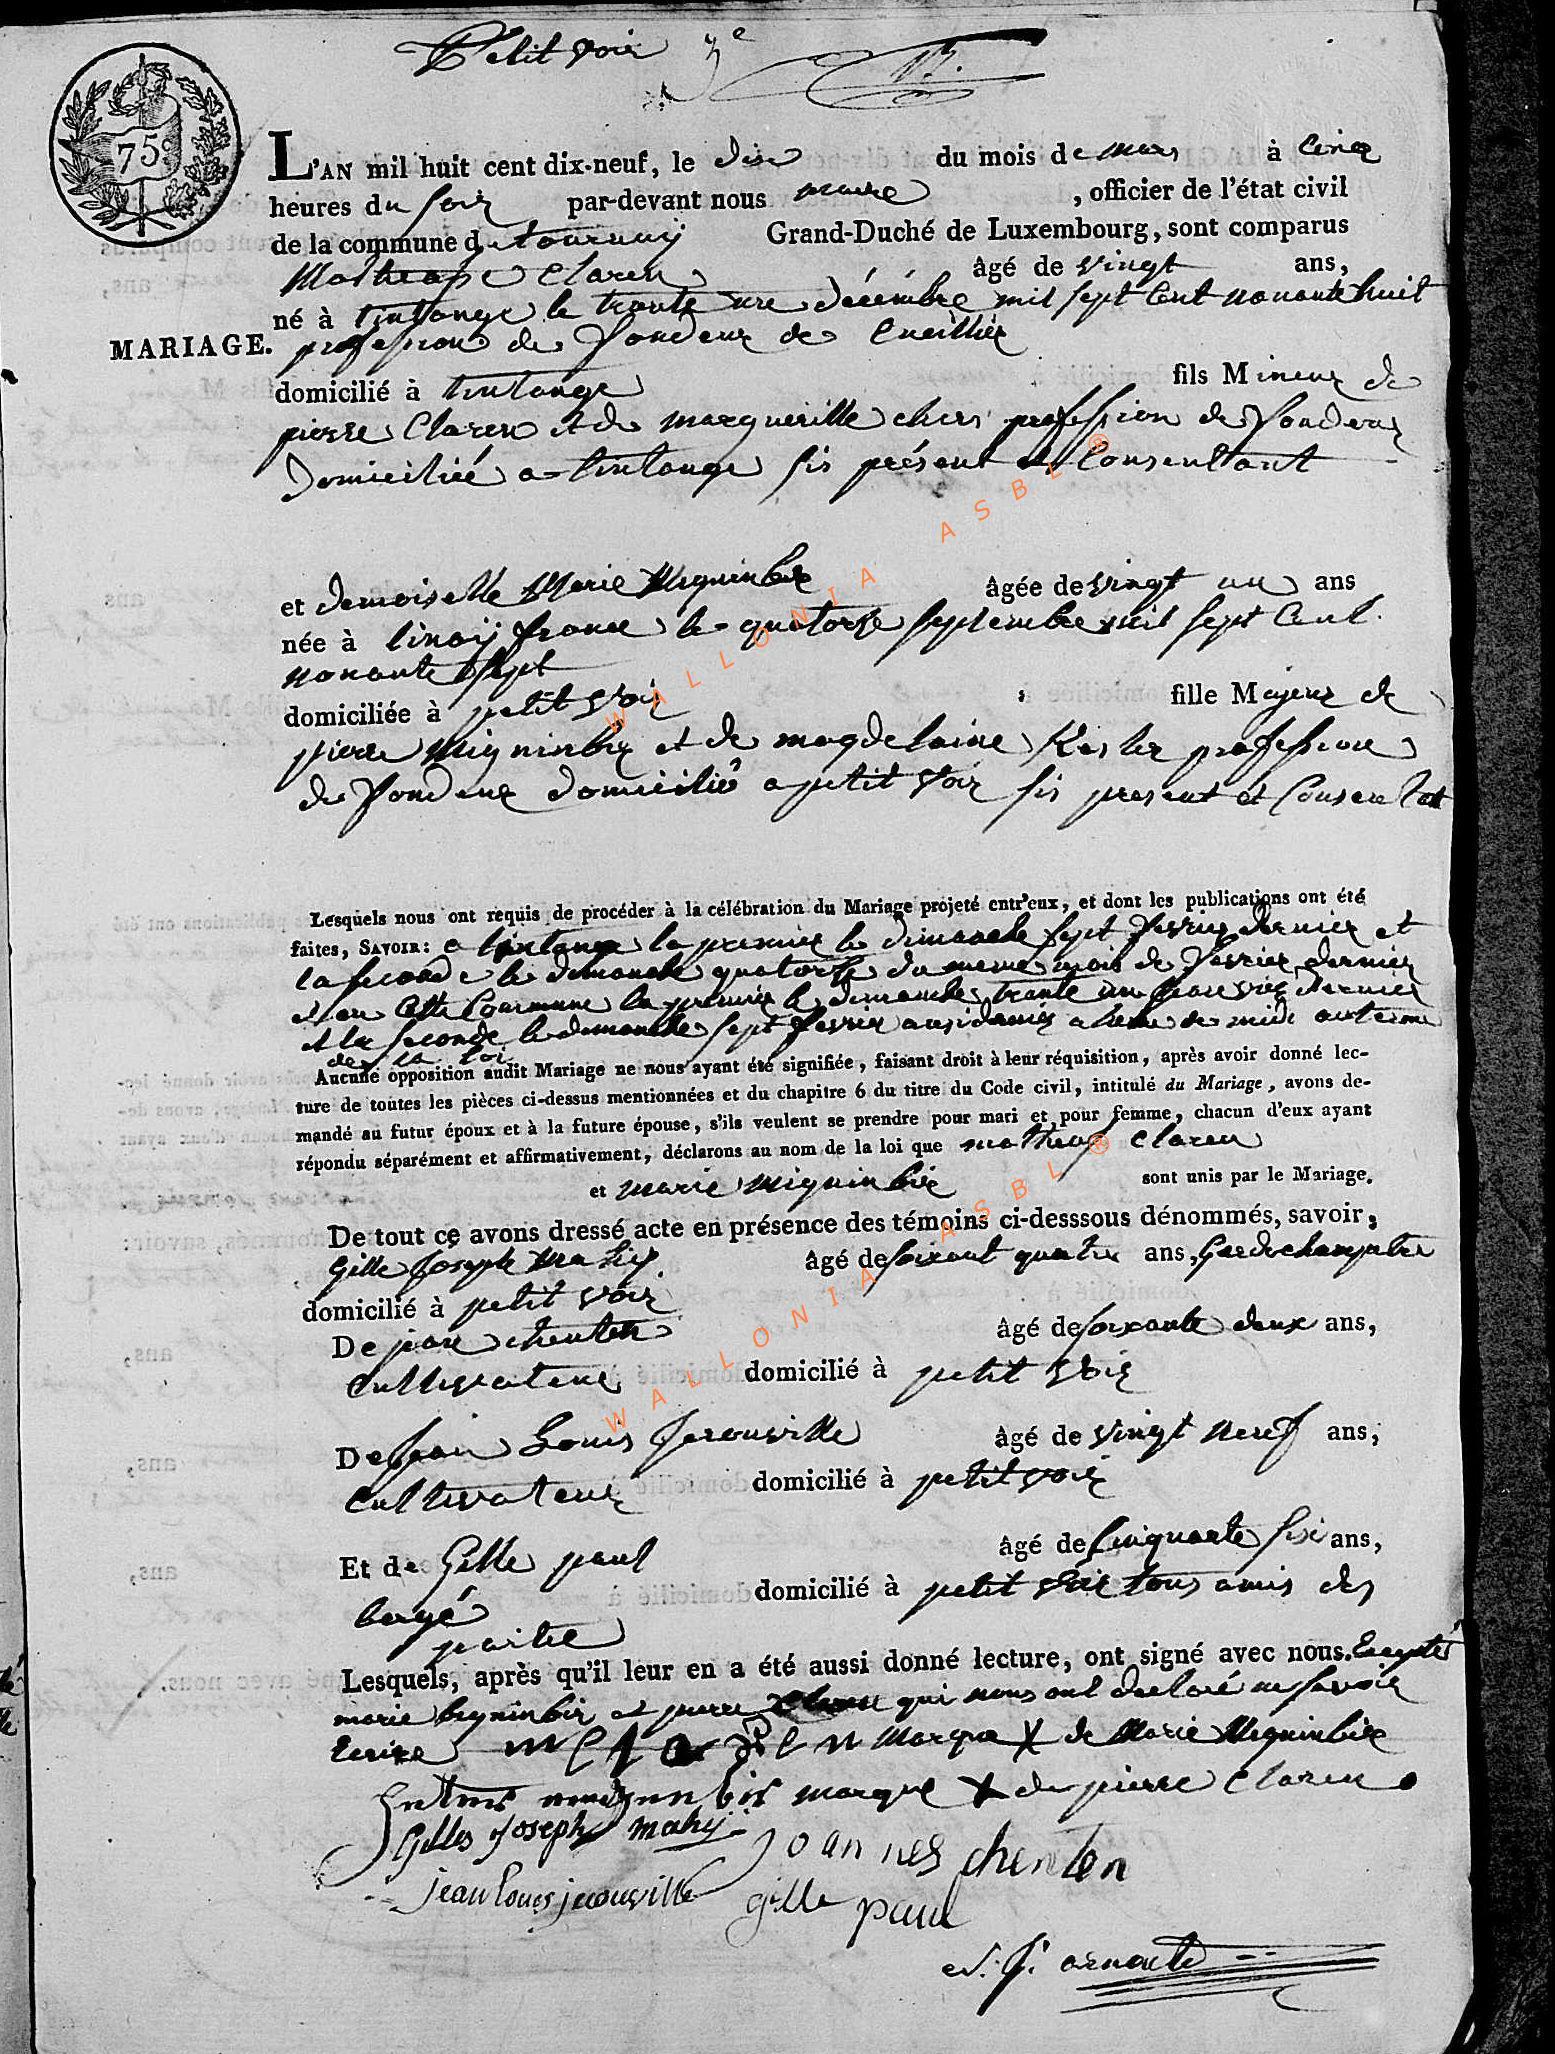 Petit voir 3e
75 c
L'AN mil huit cent dix-neuf, le dix du mois de mars à cinq
heures du soir par-devant nous maire , officier de l'état civil
de la commune de tournay Grand-Duché de Luxembourg, sont comparus
Claren âgé de vingt ans,
né à tintange le trante une décémbre mil sept Cent nonante huit
MARIAGE.
profession de fondeur de Cueillier
domicilié à tintange fils Mineur de
pierre Claren et de marguerille chers profession de fondeur
domicilié a tintange sis présent et Consentant
et demoiselle Marie Migninbir âgée de vingt un ans
née à france le quatorse septembre mil sept Cent
nonante sept
domiciliée à petit voir fille Majeur de
pierre Migninbir et de magdelaine Kesler profession
de fondeur domicilié a petit voir sis present et Consentat
Lesquels nous ont requis de procéder à la célébration du Mariage projeté entr'eux, et dont les publications ont été
faites, SAVOIR: a tintange la premier le dimanche sept fevrier dernier et
la seconde le dimanche quatorse du meme mois de fevrier dernier
et en Cette Commune la premier le dimanche trante un janvier dernier
et la seconde le dimanche sept fevrier ausi dernier a heure de midi
de la loi
Aucune opposition audit Mariage ne nous ayant été signifiée, faisant droit à leur réquisition, après avoir donné lec-
ture de toutes les pièces ci-dessus mentionnées et du chapitre 6 du titre du Code civil, intitulé du Mariage, avons de-
mandé au futur époux et à la future épouse, s'ils veulent se prendre pour mari et pour femme, chacun d'eux ayant
répondu séparément et affirmativement, déclarons au nom de la loi que Claren
et marie migninbir sont unis par le Mariage.
De tout ce avons dressé acte en présence des témoins ci-desssous dénommés, savoir;
Gille joseph mahy âgé de soixant quatre ans, Gardechampetre
domicilié à petit voir
De jean chenten âgé de soixante deux ans,
Cultivateur domicilié à petit voir
De jean Louis jerouville âgé de vingt neuf ans,
Cultivateur domicilié à petit voir
Et de Gille paul âgé de sinquante sis ans,
bergé domicilié à petit voir tous amis des
partie
Lesquels, après qu'il leur en a été aussi donné lecture, ont signé avec nous. Excepté
marie migninbir et pierre Claren qui nous ont declaré ne savoir
Ecrire m Claren Marque X de Marie Migninbir
marque X de pierre Claren
Gilles Joseph mahy Joannes chenten
jean louis jerouville gille paul
WALLONIA ASBL ®
WALLONIA ASBL ®